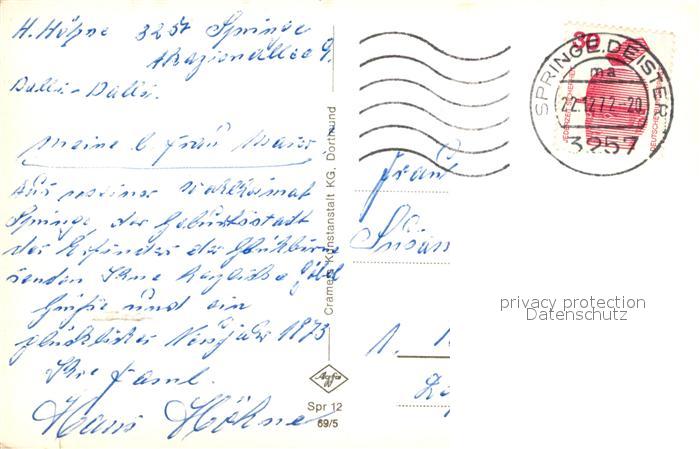 H. Höhne 3257 Springe
Akazienallee 9.
Dalli-Dalli.
Meine l Frau Maier
Aus meiner Wahlheimat
Springe, der Geburtsstadt
des Erfinders der Glühbirne
senden Ihne herzliche Göbel
Grüße und ein
glückliches Neujahr 1973
Ihre Faml.
Hans Höhne
Cramers Kunstanstalt KG, Dortmund
Agfa
Spr 12
69/5
30
SPRINGE, DEISTER
ma
22.12.72-20
3257
JEDERZEIT SICHERHEIT
DEUTSCHE
Frau
Susan
1.
privacy protection
Datenschutz